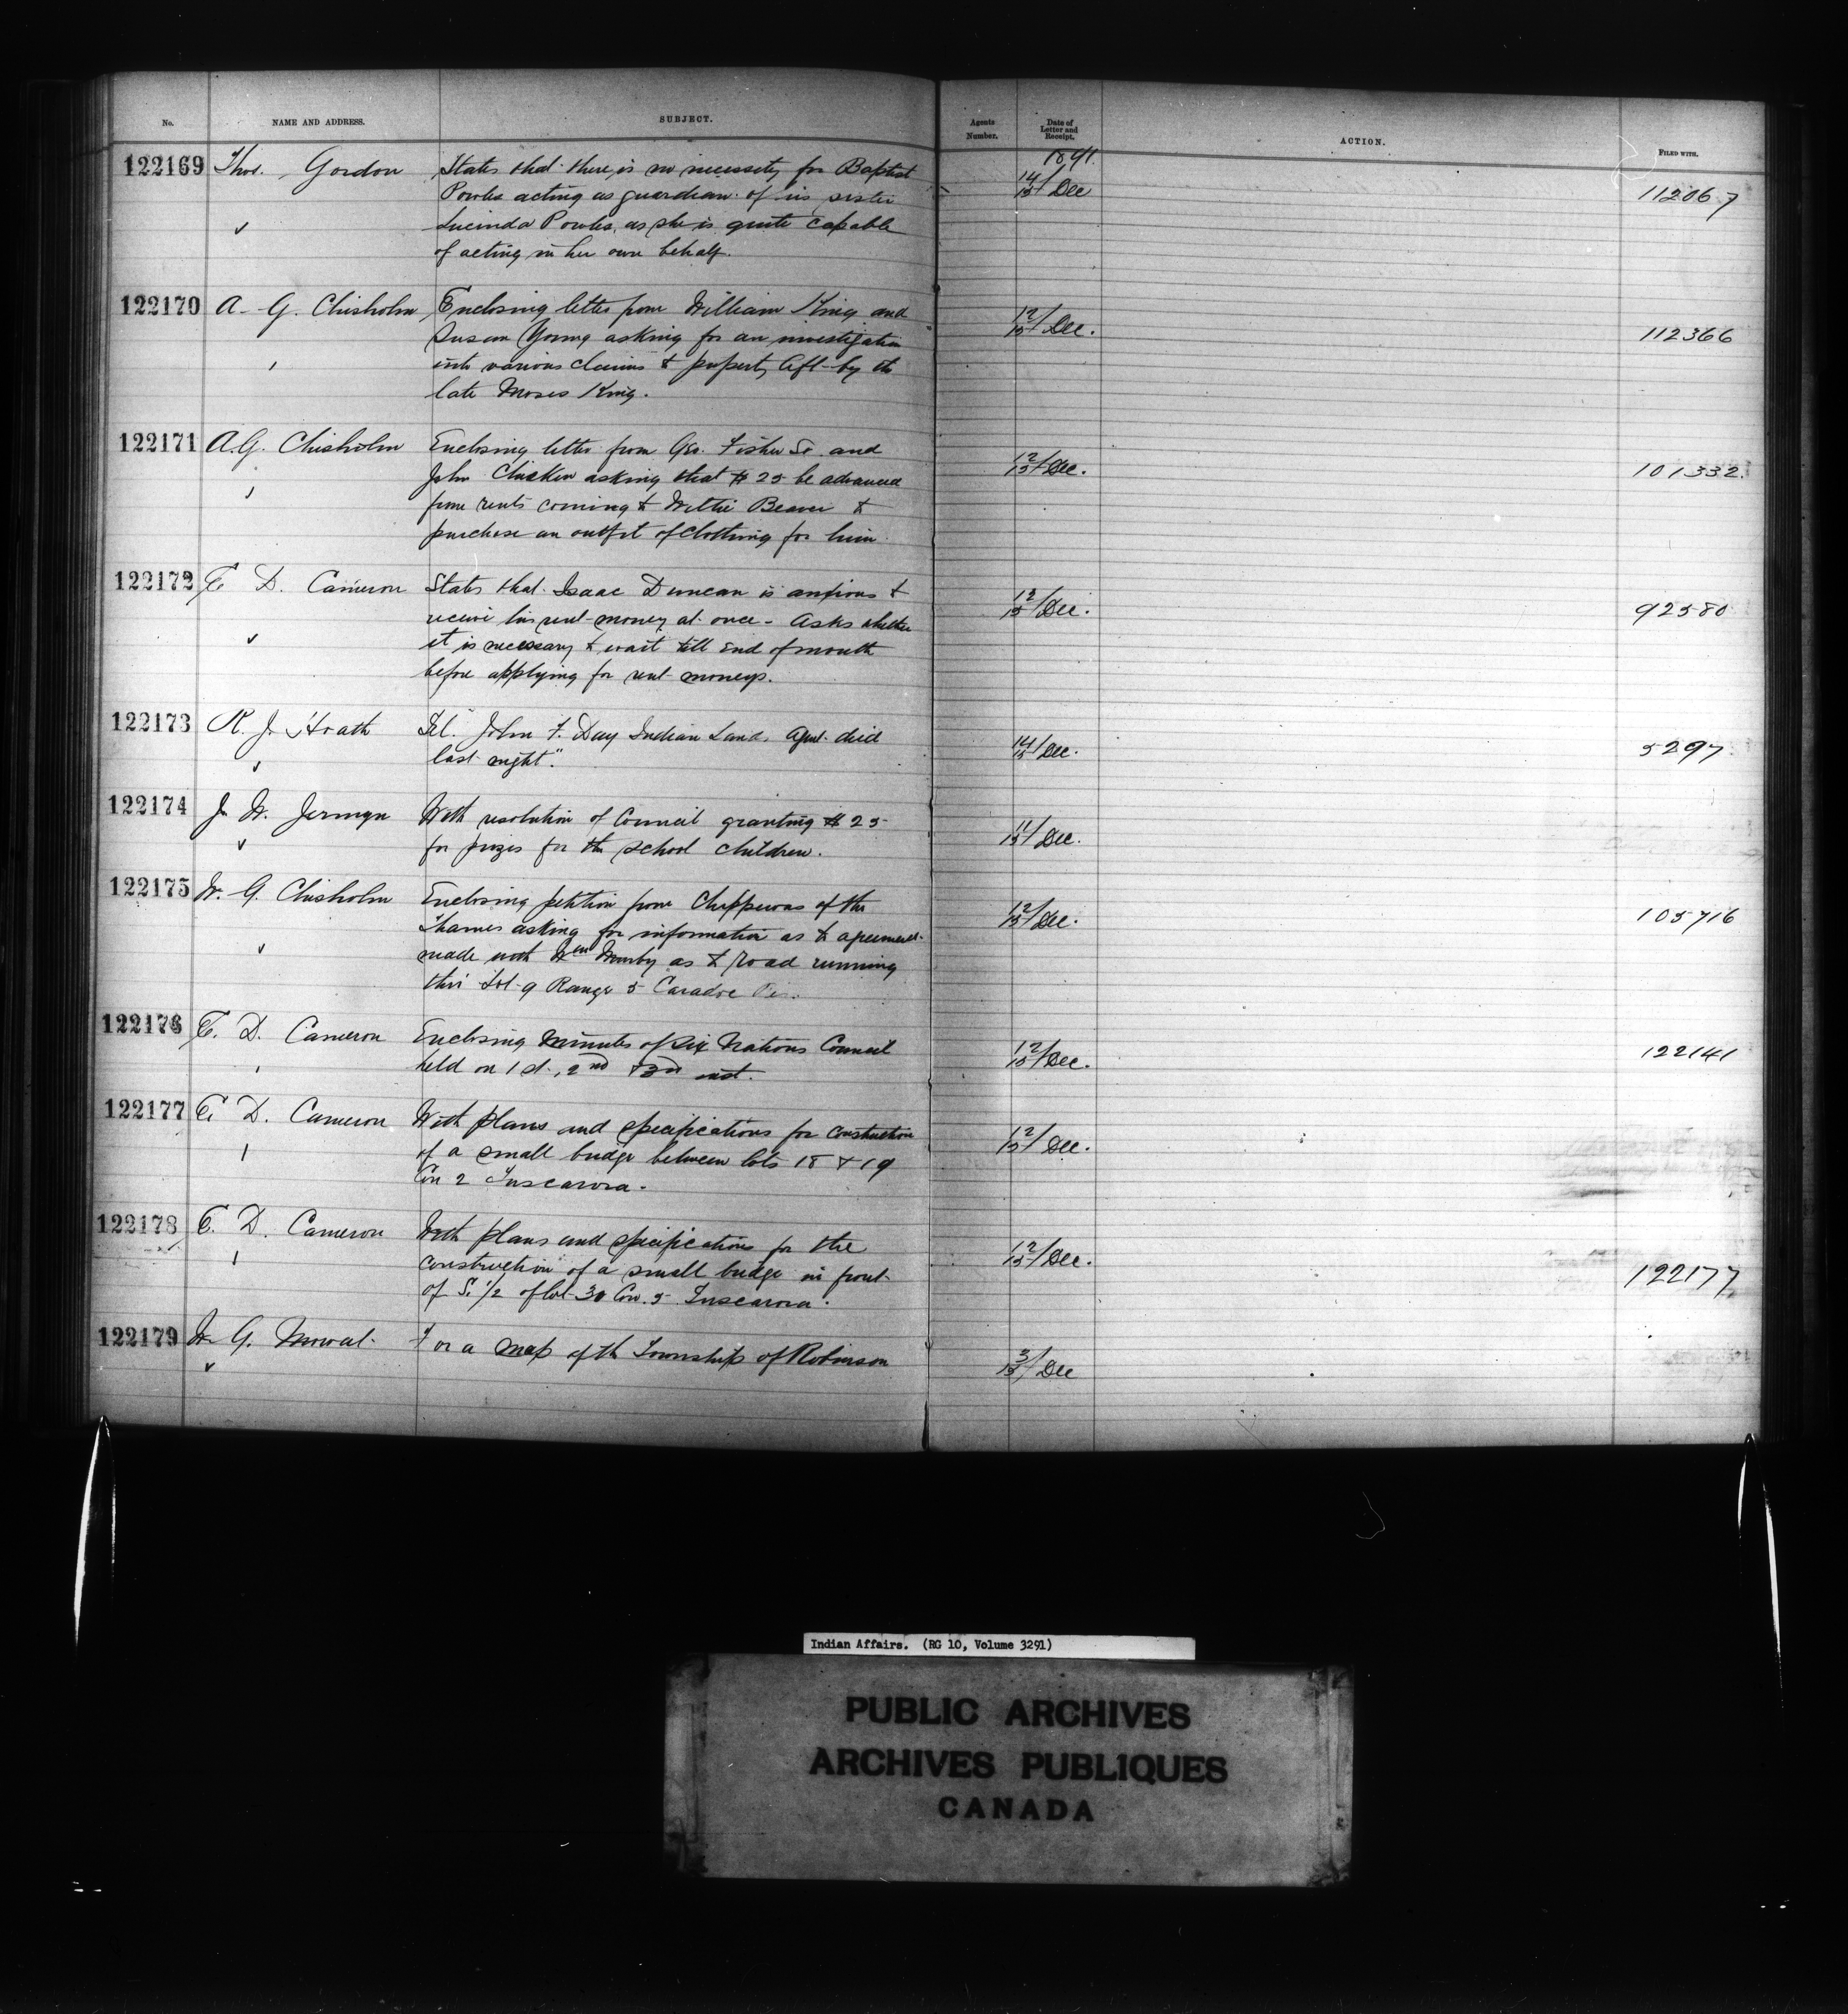 No. NAME AND ADDRESS. SUBJECT. Agents Number. Date of Letter and Receipt. ACTION. FILED WITH.
1891.
122169 Thos. Gordon States that there is no necessity for Baptist 14/15 Dec 112067
Powles acting as guardian of his sister
Lucinda Powles, as she is quite capable
of acting in her own behalf.
122170 A. G. Chisholm Enclosing letter from William King and 12/15 Dec. 112366
Susan Young asking for an investigation
into various claims & property left by the
late Moses King.
122171 A. G. Chisholm Enclosing letter from Geo. Fisher Sr. and 12/15 Dec. 101332.
John Chicken asking that $25 be advanced
from rents coming to Willie Beaver to
purchase an outfit of clothing for him.
122172 E. D. Cameron States that Isaac Duncan is anxious to 12/15 Dec. 92580
receive his rent money at once - Asks whether
it is necessary to wait till end of month
before applying for rent moneys.
122173 R. J. Tel. "John F. Day Indian Land Agent died 14/15 Dec. 5297
last night".
122174 J. W. Jermyn With resolution of Council granting $25 11/15 Dec.
for prizes for the school children.
122175 G. Chisholm Enclosing petition from Chippewas of the 12/15 Dec. 105716
Thames asking for information as to agreement
made with Wm as to road running
thro' Lot 9 Range 5 Caradoc
122176 E. D. Cameron Enclosing Minutes of Six Nations Council 12/15 Dec. 122141
held on 1st, 2nd & 3rd inst.
122177 E. D. Cameron With plans and specifications for construction 12/15 Dec.
of a small bridge between lots 18 & 19
Con 2 Tuscarora.
122178 E. D. Cameron With plans and specifications for the 12/15 Dec. 122177
construction of a small bridge in front
of S. 1/2 of lot 30 Con. 5 Tuscarora.
122179 G. Mowat For a map of the Township of Robinson 3/15 Dec
Indian Affairs. (RG 10, Volume 3291)
PUBLIC ARCHIVES
ARCHIVES PUBLIQUES
CANADA